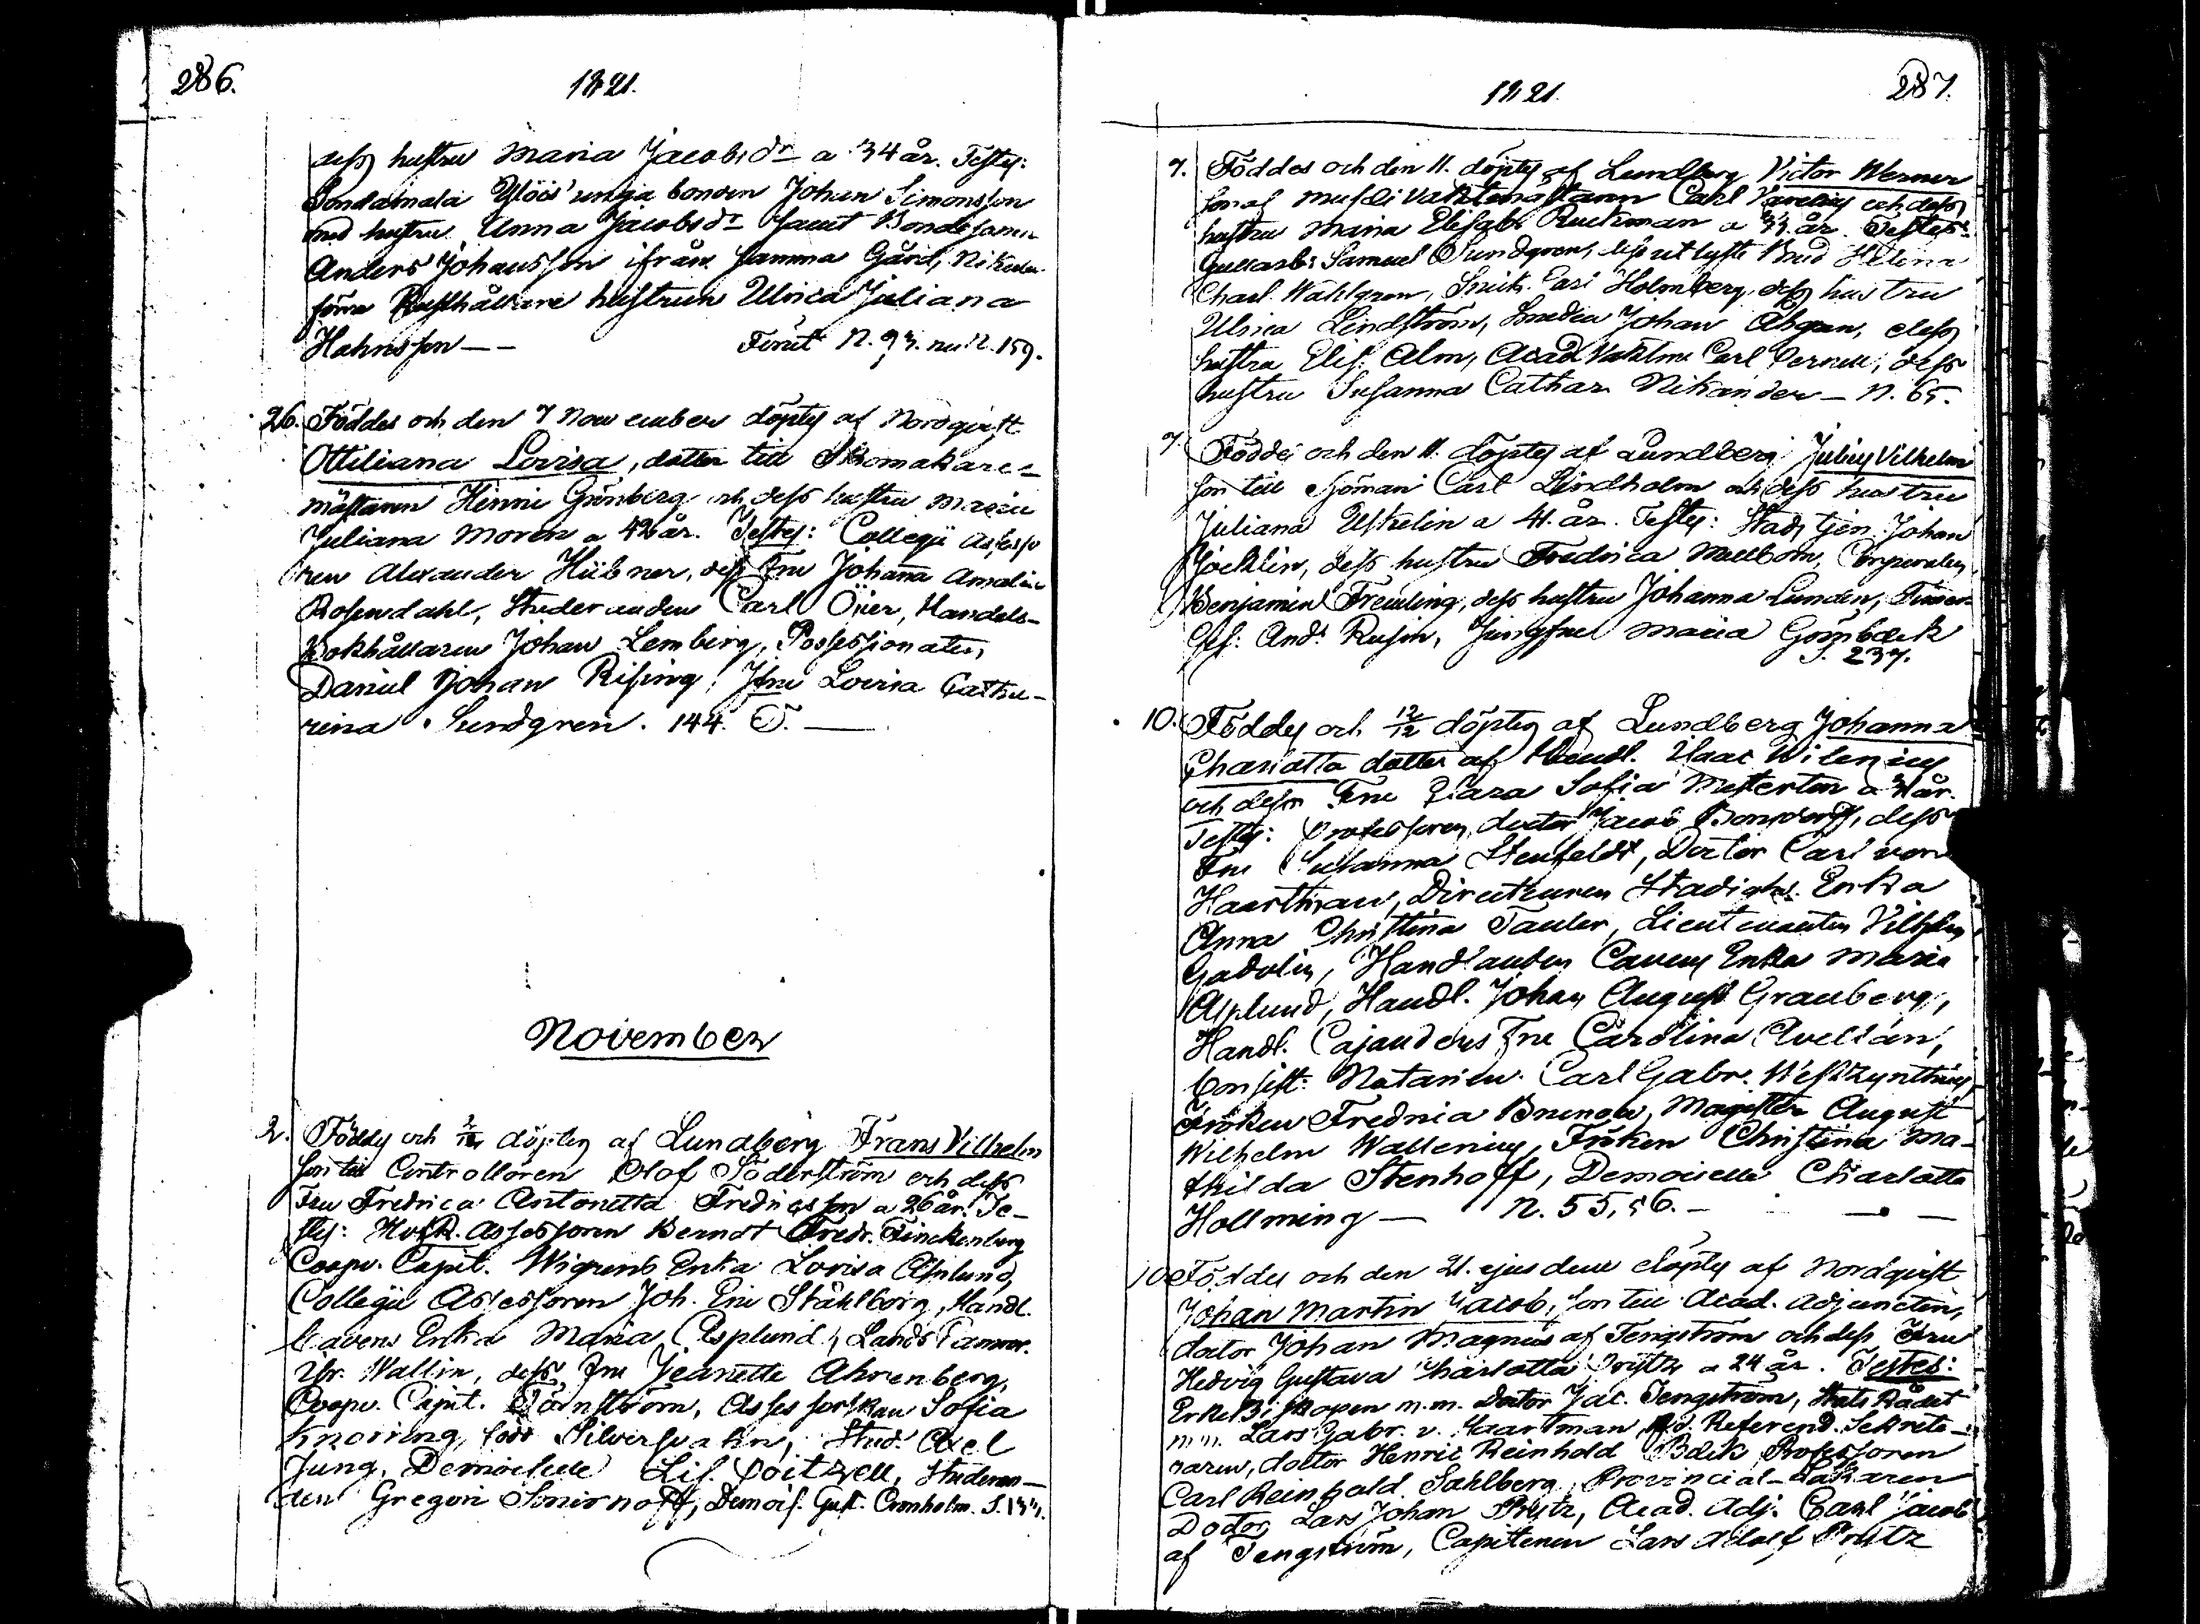 286.
1821.
dess hustru Maria Jacobsdr a 34 år. Testes:
unga bonden Johan Simonsson
med hustru Anna Jacobsdr samt Bondesonen
Anders Johansson ifrån samma Gård,
Rusthållare hustrun Ulrica Juliana
Hahnsson — — Förut N. 93. nu N. 159.
26. Föddes och den 7 November döptes af Nordqvist
Ottiliana Lovisa, dotter till Skomakare-
mästaren Henric Grönberg och dess hustru Maria
Juliana Moren a 42 år. Testes: Collegii Assesso
ren Alexander Hübner, dess Fru Johanna Amalia
Rosendahl, Studeranden Carl Öjer, Handels-
Bokhållaren Johan Lemberg, Possessionaten,
Daniel Johan Rising, Jfru Lovisa Catha-
rina Sundgren. 144. T. —
November
2. Föddes och 2/12 döptes af Lundberg Frans Vilhelm
son till Controlloren Olof Söderström och dess
Fru Fredrica Antonetta Fredricsson a 26 år. Te-
stes: HofR. Assessoren Berndt Fredr. Finckenberg
Coopv. Capit. Wigrens Enka Lovisa Asplund,
Collegii Assessoren Joh. Eric Ståhlborg, Handl.
Cavens Enka Maria Asplund, Lands Camrer.
Abr. Wallin, dess Fru Jeanette Ahrenberg,
Coopv. Capit. Törnström, Assessorskan Sofia
Knorring, född Silfversvahn, Stud. Axel
Jung, Demoiselle Lis. Poitzell, Studeran-
den Gregori Smirnoff, Demois. Gust. Cronholm.
1821.
287.
7. Föddes och den 11. döptes af Lundberg Victor Werner
son af Carl och dess
hustru Maria Elisab. Ruckman a 33 år. Testes:
Samuel Sundgren, dess Brud Helena
Charl. Wahlgren, Snick. Carl Holmberg, dess hustru
Ulrica Lindström, Smeden Johan Åhgren, dess
hustru Elis. Alm, Acad Vaktm. Carl Pernell, dess
hustru Susanna Cathar. Nikander — N. 65.
7. Föddes och den 11. döptes af Lundberg Julius Vilhelm
son till Sjöman Carl Lindholm och dess hustru
Juliana a 41. år. Testes: Stads tjen. Johan
Jöcklin, dess hustru Fredrica Mellbom, Corporalen
Benjamin Fremling, dess hustru Johanna Lunden, Timmer
Ges: And: Rusin, Jungfru Maria Grönbäck
S. 237.
10. Föddes och 12/12 döptes af Lundberg Johanna
Charlotta dotter af Handl. Isaac Wilenius
och dess Fru Clara Sofia Meserton a 31 år.
Testes: Professoren, doctor Jacob Bonsdorff, dess
Fru Susanna Stenfeldt, Doctor Carl von
Haartman, Directeuren Stadigs Enka
Anna Christina Tauler, Lieutenanten Vilhelm
Gadolin, Handlanden Cavens Enka Maria
Asplund, Handl. Johan August Granberg,
Handl. Cajanders Fru Carolina Avellan,
Consist: Notarien. Carl Gabr. Westzynthius
Fröken Fredrica Brunow, Magister August
Wilhelm Wallenius, Fröken Christina Ma-
thilda Stenhoff, Demoiselle Charlotta
Hollming — N. 55, 56. — —
10. Föddes och den 21. ejusdem döptes af Nordqvist
Johan Martin Jacob, son till Acad. Adjuncten,
doctor Johan Magnus af Tengström och dess Fru
Hedvig Gustava Charlotta Prytz a 24 år. Testes:
ErkeBiskopen m.m. Doctor Jac. Tengström, Stats Rådet
m.m. Lars Gabr. v. Haartman, Referend. Sekrete-
raren, doctor Henric Reinhold Böck, Professoren
Carl Reinhold Sahlberg, Provincial-Läkaren
Doctor Lars Johan Prytz, Acad. Adj. Carl Jacob
af Tengström, Capitenen Lars Adolf Prytz